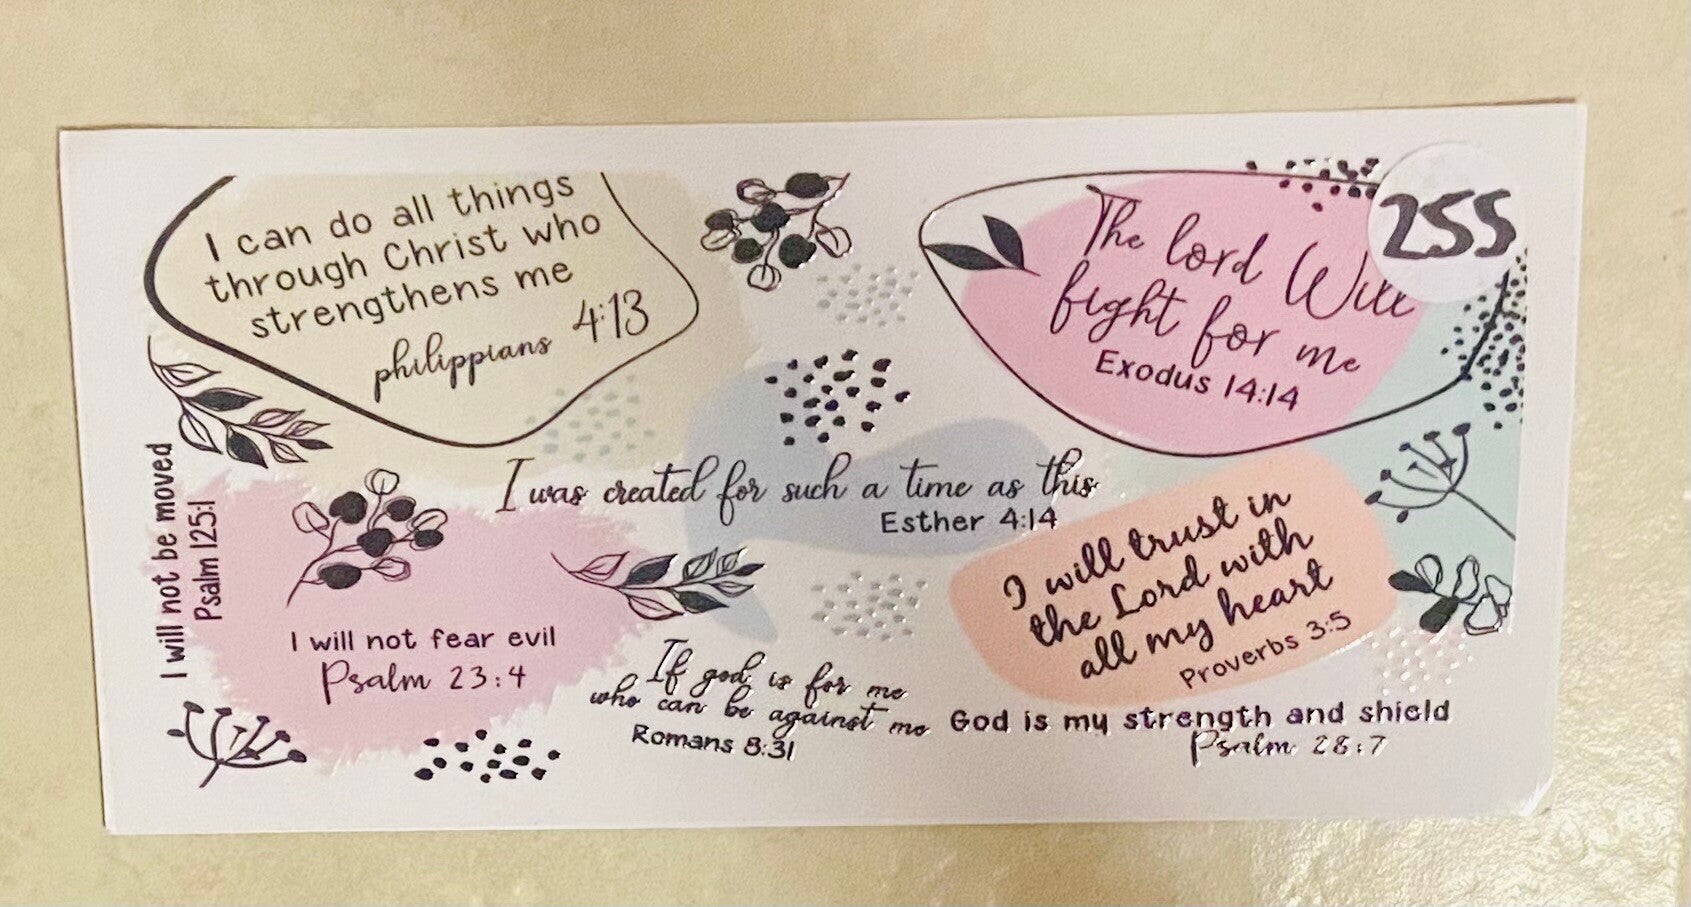 I can do all things
through Christ who
strengthens me
philippians 4:13
The lord Will
fight for me
Exodus 14:14
255
I was created for such a time as this
Esther 4:14
I will not be moved
Psalm 125:1
I will trust in
the Lord with
all my heart
Proverbs 3:5
I will not fear evil
Psalm 23:4
If god is for me
who can be against me
Romans 8:31
God is my strength and shield
Psalm 28:7